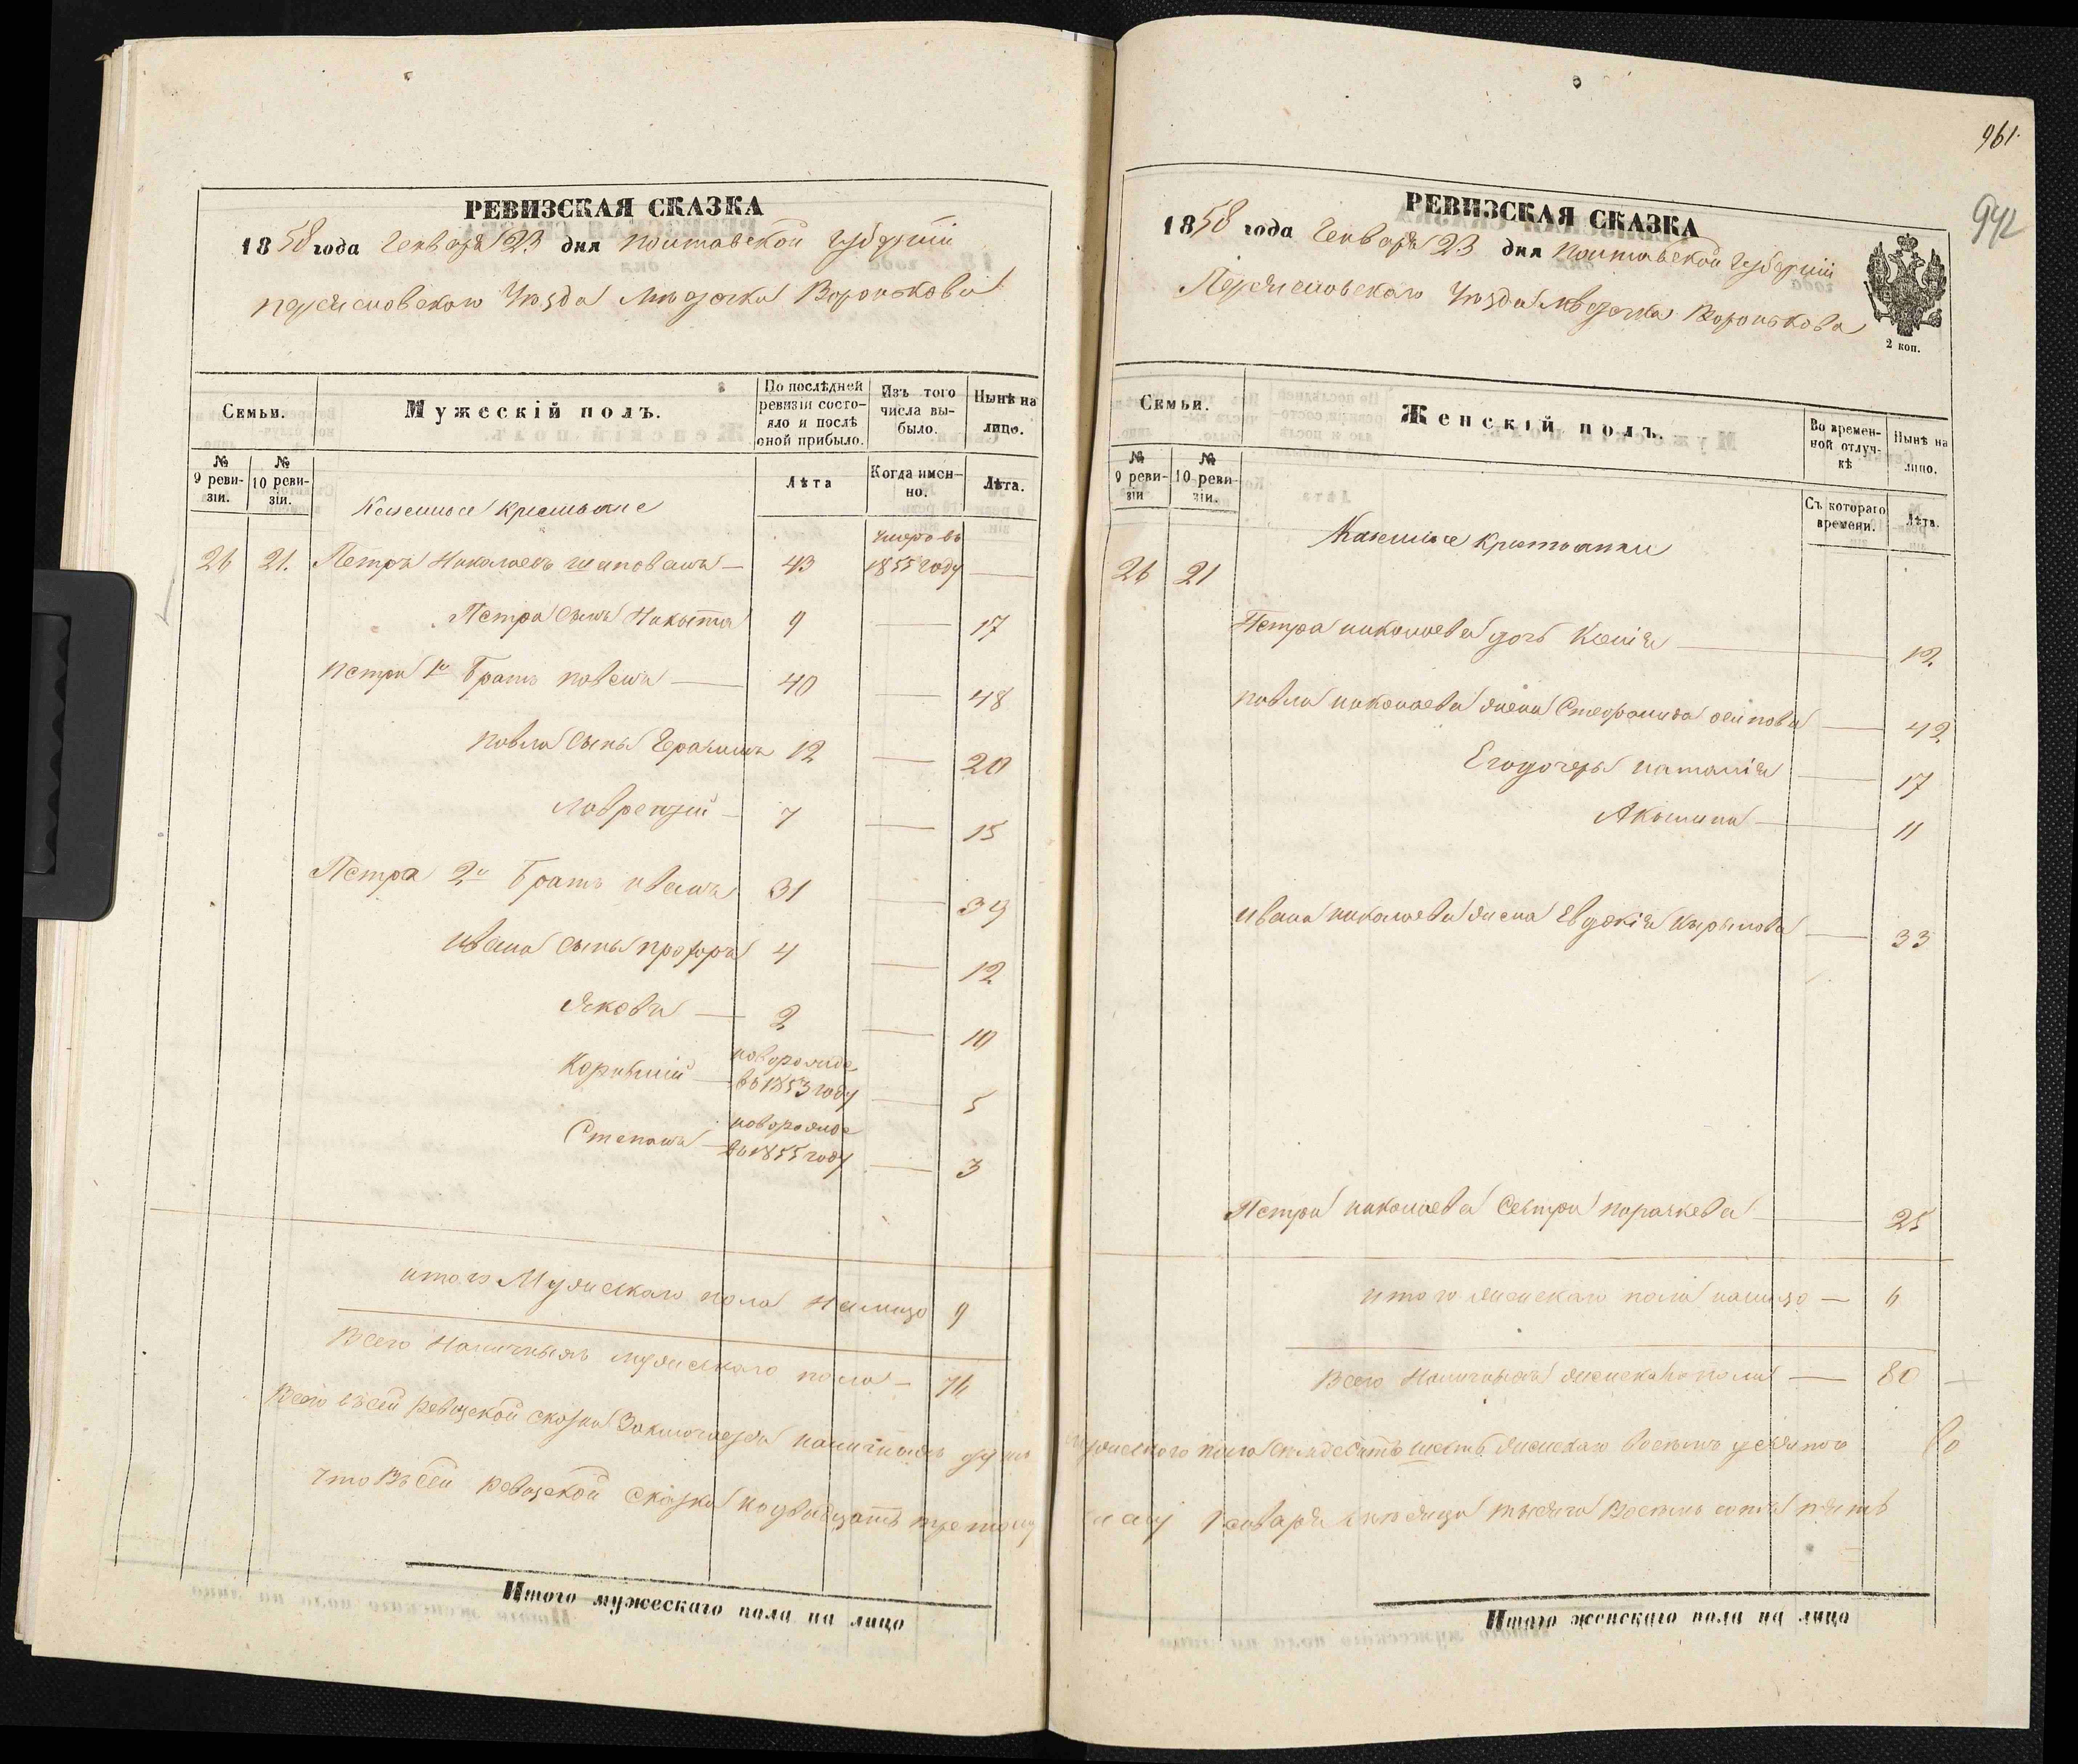 РЕВИЗСКАЯ СКАЗКА
1858 года Генваря 23 дня Полтавской Губерніи
Переясловскаго Уѣзда Мѣстечка Воронькова
Семьи.
Мужескій полъ.
По послѣдней ревизіи состояло и послѣ оной прибыло.
Изъ того числа выбыло.
Нынѣ на лицо.
№ 9 ревизіи.
№ 10 ревизіи.
Лѣта
Когда именно.
Лѣта.
Казенные крестьяне
26 21. Петръ Николаевъ Шаповалъ — 43 умеръ въ 1855 году —
Петра сынъ Никита 9 — 17
Петра 1й братъ Павелъ — 40 — 48
Павла сынъ Герасимъ 12 — 20
Лаврентій — 7 — 15
Петра 2й братъ Иванъ 31 — 39
Ивана сынъ Прохоръ 4 — 12
Яковъ — 2 — 10
Корнилій — новорожде въ 1853 году — 5
Степанъ — новорожде въ 1855 году — 3
итого Мужескаго пола налицо 9
Всего Наличныхъ мужескаго пола — 76
Всего въ сей ревизской сказки Заключается наличныхъ душъ
что въ сей ревизской сказки надвадцать третому
Итого мужескаго пола на лицо
961.
942
РЕВИЗСКАЯ СКАЗКА
1858 года Генваря 23 дня Полтавской Губерніи
Переясловскаго Уѣзда Мѣстечка Воронькова
2 коп.
Семьи.
Женскій полъ.
Во временной отлучкѣ
Нынѣ на лицо.
№ 9 ревизіи
№ 10 ревизіи.
Съ котораго времени.
Лѣта.
Казенные крестьянки
26 21
Петра Николаева дочь Ксенія — 12
Павла Николаева жена Стефанида Осипова — 42
Его дочерь Наталія — 17
Акилина — 11
Ивана Николаева жена Евдокія Кырылова — 33
Петра Николаева сестра Параскева — 25
итого женскаго пола налицо — 6
Всего Наличныхъ женскаго пола — 80
мужескаго пола семдесятъ шесть женскаго восемъ десятъ 80
Генваря мѣсяца тысяча восемь сотъ пять
Итого женскаго пола на лицо